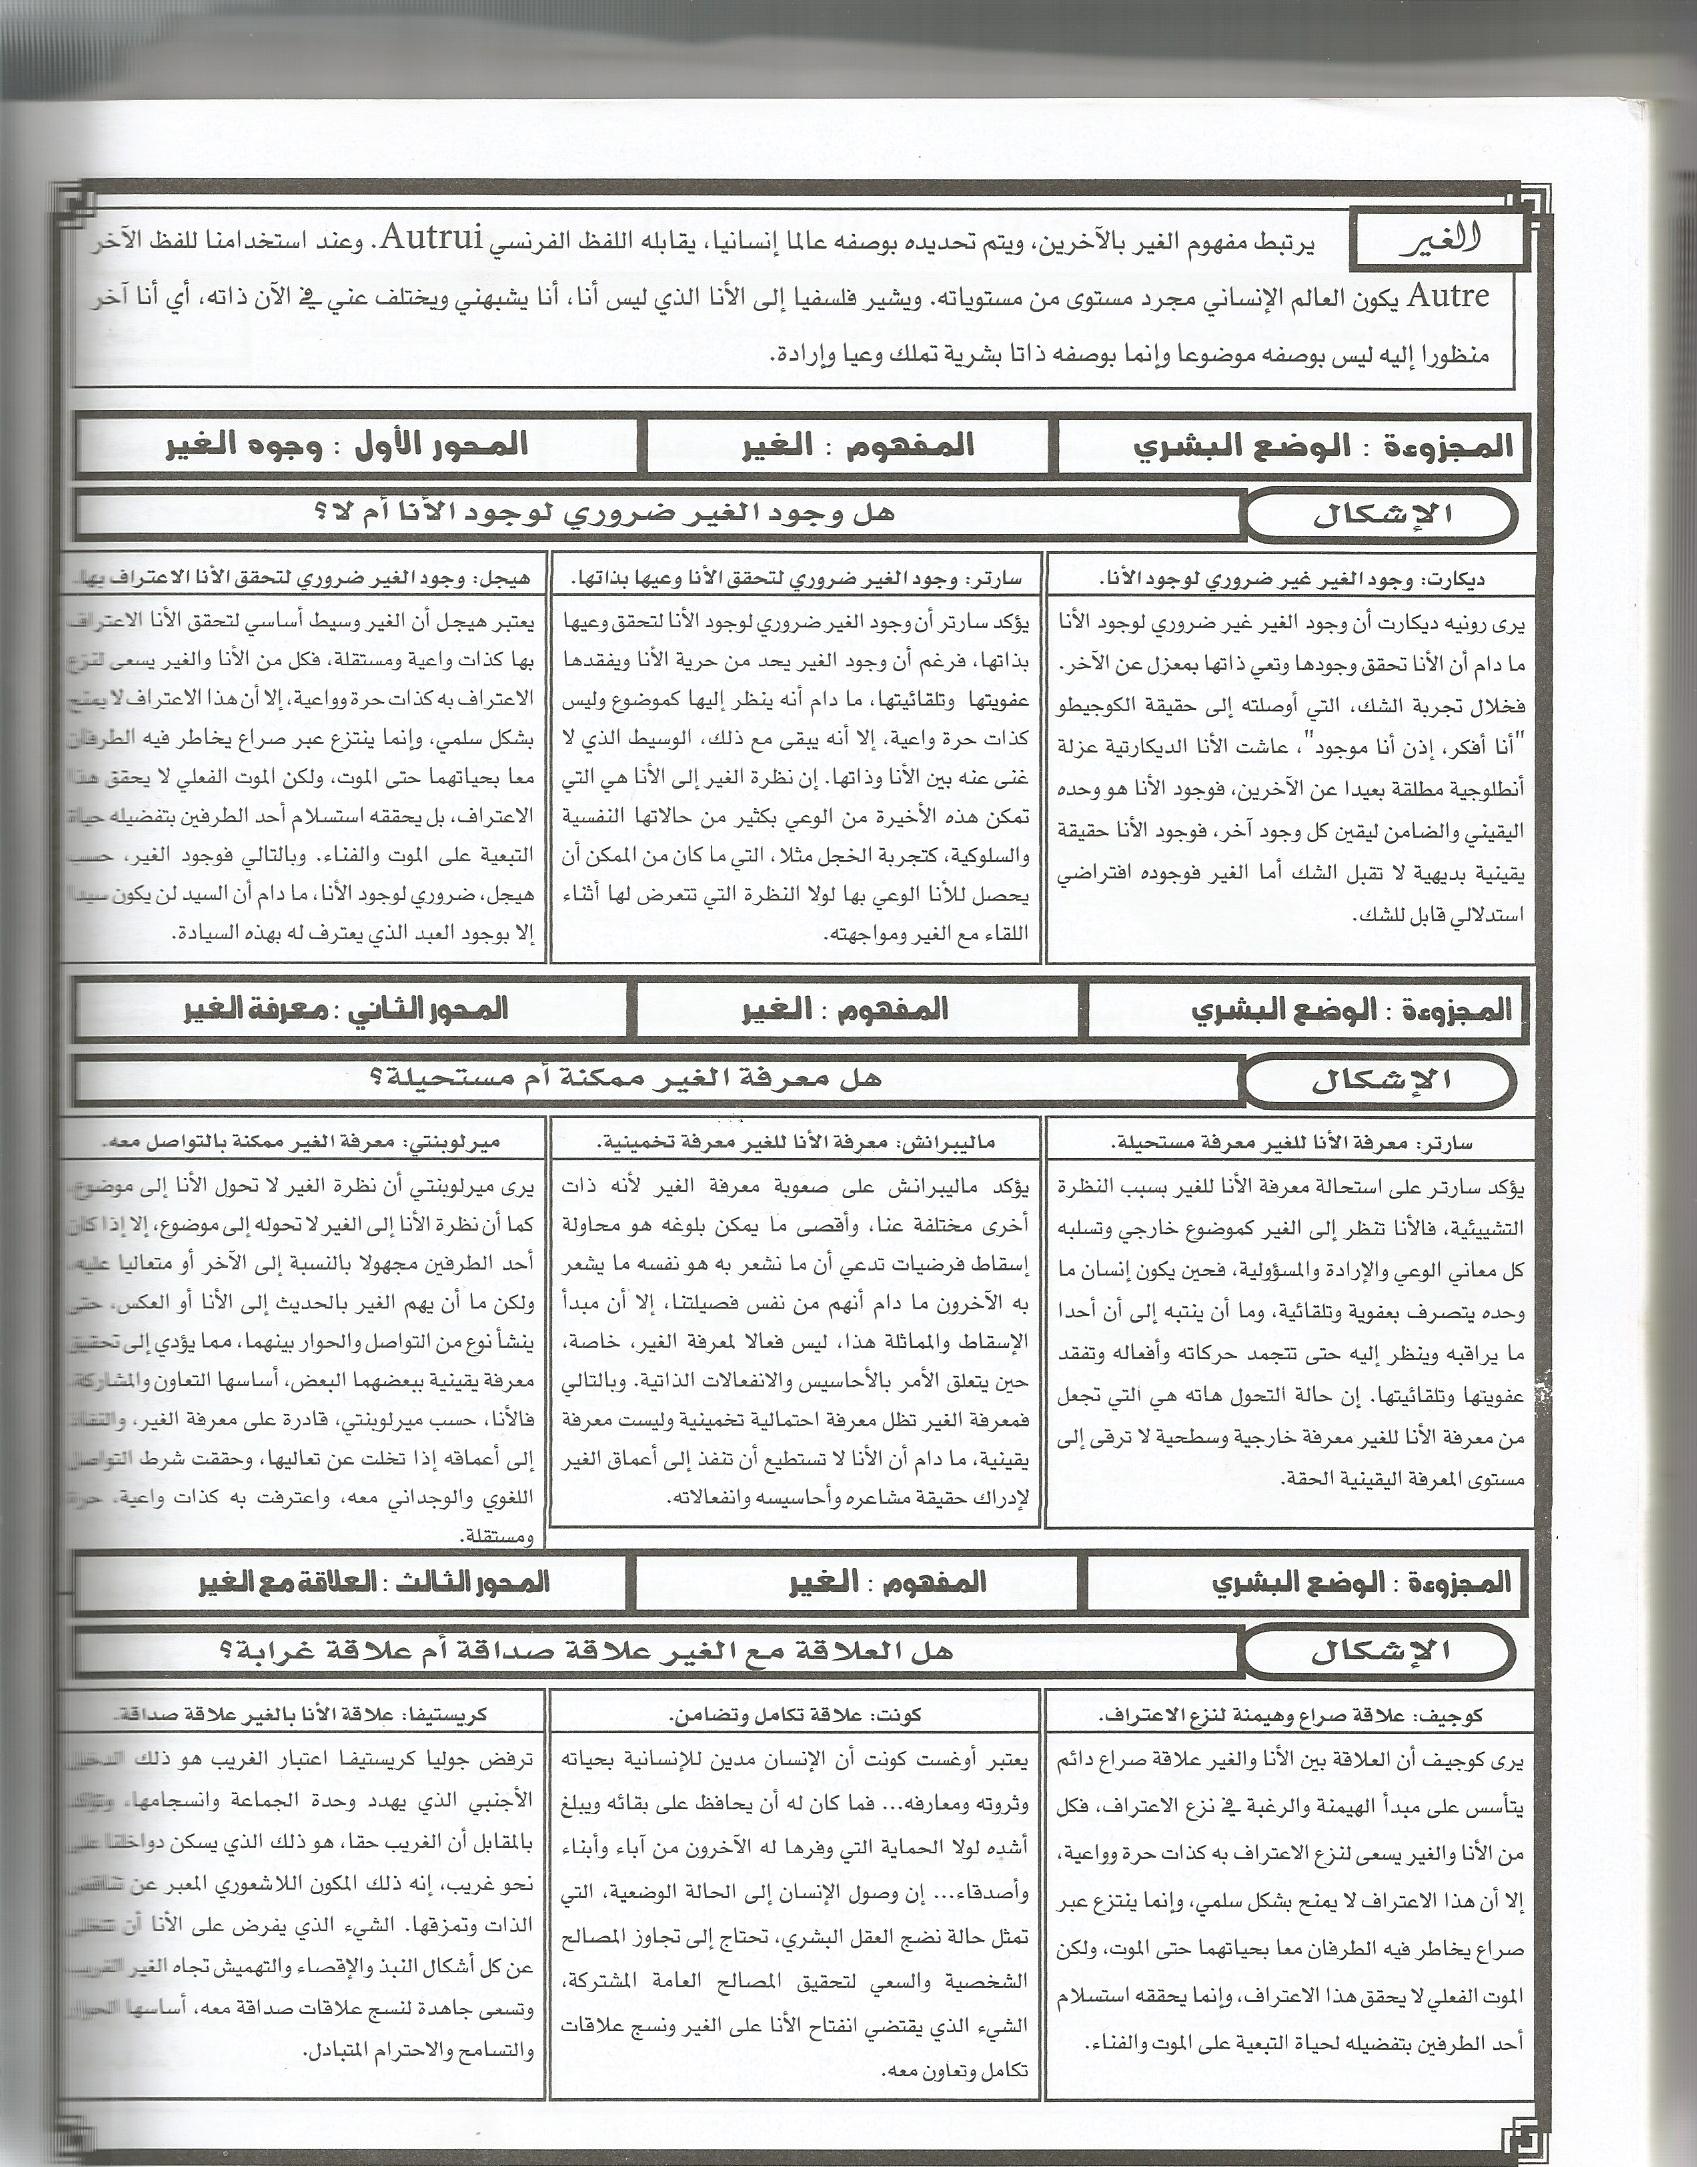 الغير
يرتبط مفهوم الغير بالآخرين، ويتم تحديده بوصفه عالما إنسانيا، يقابله اللفظ الفرنسي Autrui. وعند استخدامنا للفظ الآخر
Autre يكون العالم الإنساني مجرد مستوى من مستوياته. ويشير فلسفيا إلى الأنا الذي ليس أنا، أنا يشبهني ويختلف عني في الآن ذاته، أي أنا آخر
منظورا إليه ليس بوصفه موضوعا وإنما بوصفه ذاتا بشرية تملك وعيا وإرادة.
المجزوءة : الوضع البشري
المفهوم : الغير
المحور الأول : وجود الغير
الإشكال
هل وجود الغير ضروري لوجود الأنا أم لا؟
ديكارت: وجود الغير غير ضروري لوجود الأنا.
يرى رونيه ديكارت أن وجود الغير غير ضروري لوجود الأنا
ما دام أن الأنا تحقق وجودها وتعي ذاتها بمعزل عن الآخر.
فخلال تجربة الشك، التي أوصلته إلى حقيقة الكوجيطو
"أنا أفكر، إذن أنا موجود"، عاشت الأنا الديكارتية عزلة
أنطلوجية مطلقة بعيدا عن الآخرين، فوجود الأنا هو وحده
اليقيني والضامن ليقين كل وجود آخر، فوجود الأنا حقيقة
يقينية بديهية لا تقبل الشك أما الغير فوجوده افتراضي
استدلالي قابل للشك.
سارتر: وجود الغير ضروري لتحقق الأنا وعيها بذاتها.
يؤكد سارتر أن وجود الغير ضروري لوجود الأنا لتحقق وعيها
بذاتها، فرغم أن وجود الغير يحد من حرية الأنا ويفقدها
عفويتها وتلقائيتها، ما دام أنه ينظر إليها كموضوع وليس
كذات حرة واعية، إلا أنه يبقى مع ذلك، الوسيط الذي لا
غنى عنه بين الأنا وذاتها. إن نظرة الغير إلى الأنا هي التي
تمكن هذه الأخيرة من الوعي بكثير من حالاتها النفسية
والسلوكية، كتجربة الخجل مثلا، التي ما كان من الممكن أن
يحصل للأنا الوعي بها لولا النظرة التي تتعرض لها أثناء
اللقاء مع الغير ومواجهته.
هيجل: وجود الغير ضروري لتحقق الأنا الاعتراف بها.
يعتبر هيجل أن الغير وسيط أساسي لتحقق الأنا الاعتراف
بها كذات واعية ومستقلة، فكل من الأنا والغير يسعى لنزع
الاعتراف به كذات حرة وواعية، إلا أن هذا الاعتراف لا يمنح
بشكل سلمي، وإنما ينتزع عبر صراع يخاطر فيه الطرفان
معا بحياتهما حتى الموت، ولكن الموت الفعلي لا يحقق هذا
الاعتراف، بل يحققه استسلام أحد الطرفين بتفضيله حياة
التبعية على الموت والفناء. وبالتالي فوجود الغير، حسب
هيجل، ضروري لوجود الأنا، ما دام أن السيد لن يكون سيدا
إلا بوجود العبد الذي يعترف له بهذه السيادة.
المجزوءة : الوضع البشري
المفهوم : الغير
المحور الثاني : معرفة الغير
الإشكال
هل معرفة الغير ممكنة أم مستحيلة؟
سارتر: معرفة الأنا للغير معرفة مستحيلة.
يؤكد سارتر على استحالة معرفة الأنا للغير بسبب النظرة
التشييئية، فالأنا تنظر إلى الغير كموضوع خارجي وتسلبه
كل معاني الوعي والإرادة والمسؤولية، فحين يكون إنسان ما
وحده يتصرف بعفوية وتلقائية، وما أن ينتبه إلى أن أحدا
ما يراقبه وينظر إليه حتى تتجمد حركاته وأفعاله وتفقد
عفويتها وتلقائيتها. إن حالة التحول هاته هي التي تجعل
من معرفة الأنا للغير معرفة خارجية وسطحية لا ترقى إلى
مستوى المعرفة اليقينية الحقة.
ماليبرانش: معرفة الأنا للغير معرفة تخمينية.
يؤكد ماليبرانش على صعوبة معرفة الغير لأنه ذات
أخرى مختلفة عنا، وأقصى ما يمكن بلوغه هو محاولة
إسقاط فرضيات تدعي أن ما نشعر به هو نفسه ما يشعر
به الآخرون ما دام أنهم من نفس فصيلتنا، إلا أن مبدأ
الإسقاط والمماثلة هذا، ليس فعالا لمعرفة الغير، خاصة،
حين يتعلق الأمر بالأحاسيس والانفعالات الذاتية. وبالتالي
فمعرفة الغير تظل معرفة احتمالية تخمينية وليست معرفة
يقينية، ما دام أن الأنا لا تستطيع أن تنفذ إلى أعماق الغير
لإدراك حقيقة مشاعره وأحاسيسه وانفعالاته.
ميرلوبنتي: معرفة الغير ممكنة بالتواصل معه.
يرى ميرلوبنتي أن نظرة الغير لا تحول الأنا إلى موضوع،
كما أن نظرة الأنا إلى الغير لا تحوله إلى موضوع، إلا إذا كان
أحد الطرفين مجهولا بالنسبة إلى الآخر أو متعاليا عليه.
ولكن ما أن يهم الغير بالحديث إلى الأنا أو العكس، حتى
ينشأ نوع من التواصل والحوار بينهما، مما يؤدي إلى تحقيق
معرفة يقينية ببعضهما البعض، أساسها التعاون والمشاركة.
فالأنا، حسب ميرلوبنتي، قادرة على معرفة الغير، والنفاذ
إلى أعماقه إذا تخلت عن تعاليها، وحققت شرط التواصل
اللغوي والوجداني معه، واعترفت به كذات واعية، حرة
ومستقلة.
المجزوءة : الوضع البشري
المفهوم : الغير
المحور الثالث : العلاقة مع الغير
الإشكال
هل العلاقة مع الغير علاقة صداقة أم علاقة غرابة؟
كوجيف: علاقة صراع وهيمنة لنزع الاعتراف.
يرى كوجيف أن العلاقة بين الأنا والغير علاقة صراع دائم
يتأسس على مبدأ الهيمنة والرغبة في نزع الاعتراف، فكل
من الأنا والغير يسعى لنزع الاعتراف به كذات حرة وواعية،
إلا أن هذا الاعتراف لا يمنح بشكل سلمي، وإنما ينتزع عبر
صراع يخاطر فيه الطرفان معا بحياتهما حتى الموت، ولكن
الموت الفعلي لا يحقق هذا الاعتراف، وإنما يحققه استسلام
أحد الطرفين بتفضيله لحياة التبعية على الموت والفناء.
كونت: علاقة تكامل وتضامن.
يعتبر أوغست كونت أن الإنسان مدين للإنسانية بحياته
وثروته ومعارفه... فما كان له أن يحافظ على بقائه ويبلغ
أشده لولا الحماية التي وفرها له الآخرون من آباء وأبناء
وأصدقاء... إن وصول الإنسان إلى الحالة الوضعية، التي
تمثل حالة نضج العقل البشري، تحتاج إلى تجاوز المصالح
الشخصية والسعي لتحقيق المصالح العامة المشتركة،
الشيء الذي يقتضي انفتاح الأنا على الغير ونسج علاقات
تكامل وتعاون معه.
كريستيفا: علاقة الأنا بالغير علاقة صداقة.
ترفض جوليا كريستيفا اعتبار الغريب هو ذلك الدخيل
الأجنبي الذي يهدد وحدة الجماعة وانسجامها، وتؤكد
بالمقابل أن الغريب حقا، هو ذلك الذي يسكن دواخلنا على
نحو غريب، إنه ذلك المكون اللاشعوري المعبر عن تناقض
الذات وتمزقها. الشيء الذي يفرض على الأنا أن تتخلى
عن كل أشكال النبذ والإقصاء والتهميش تجاه الغير الغريب
وتسعى جاهدة لنسج علاقات صداقة معه، أساسها الحوار
والتسامح والاحترام المتبادل.